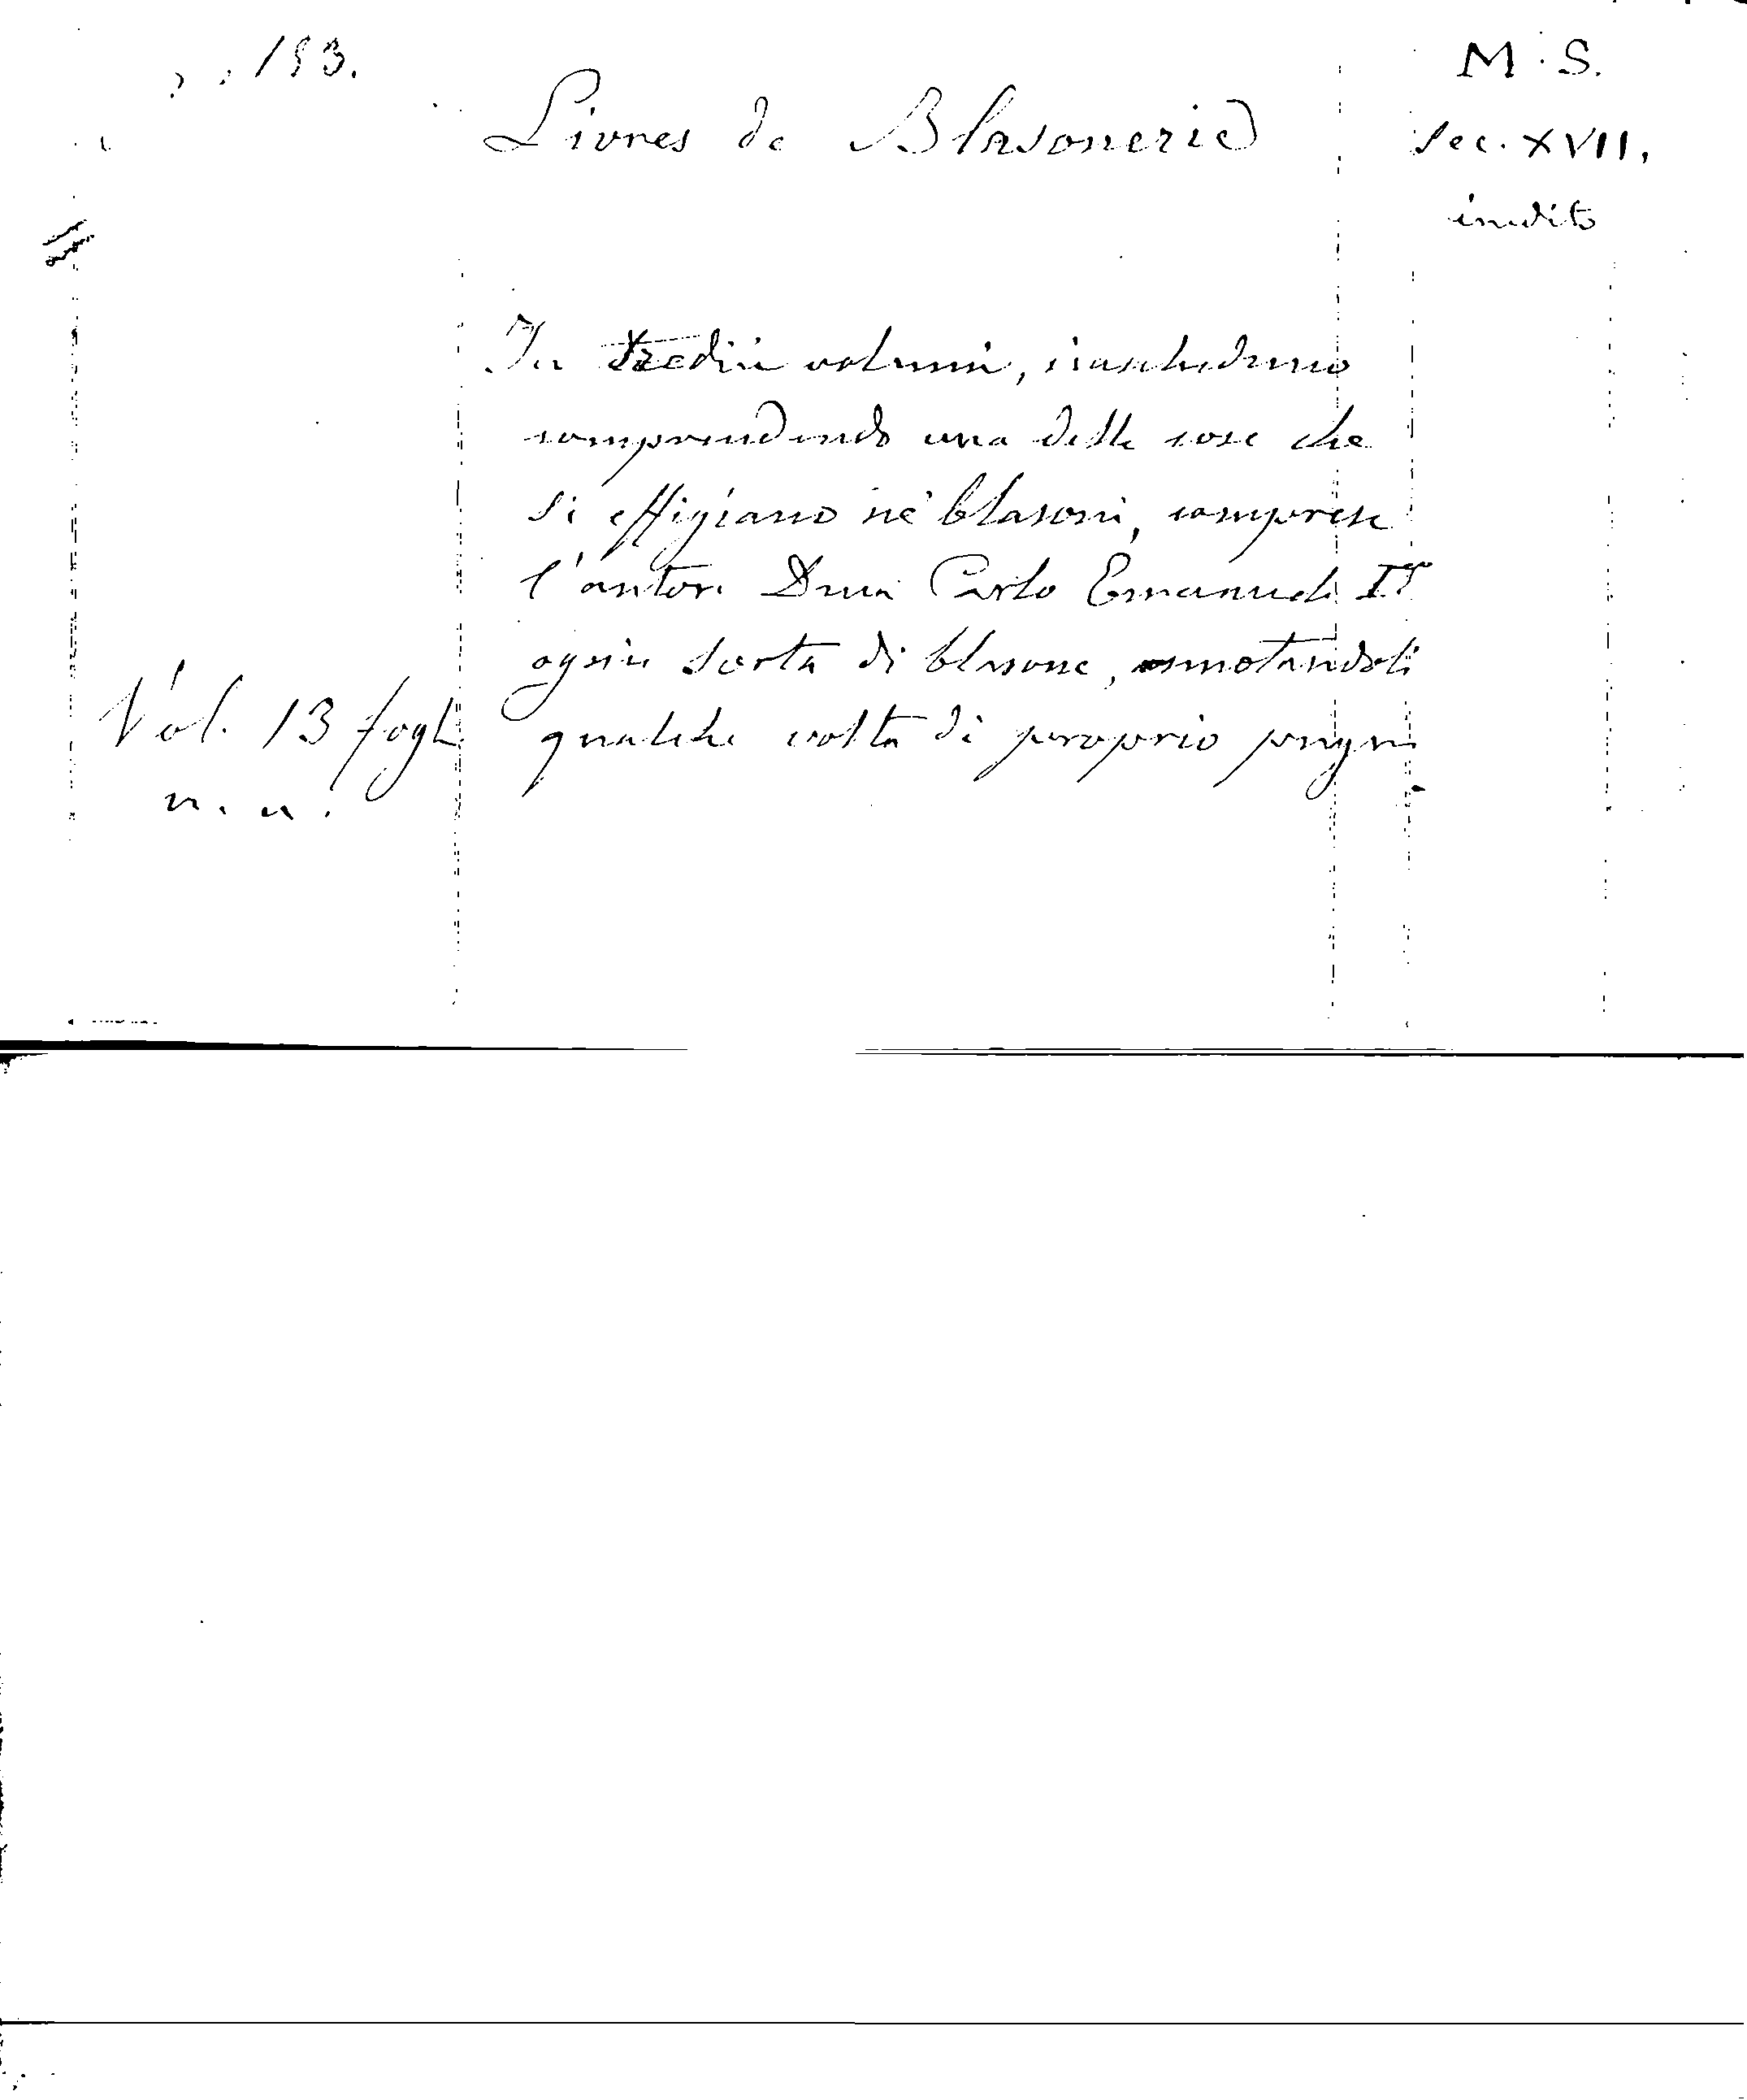 193.
M. S.
Livres de Blasonerie
Sec. XVII.
inedito
In tredici volumi, ciascheduno
comprendendo una delle cose che
si effigiano ne' blasoni, comprese
l'autore Duca Carlo Emanuele I°
ogni sorta di blasone, annotandoli
Vol. 13 fogl.
qualche volta di proprio pugno
n. n.